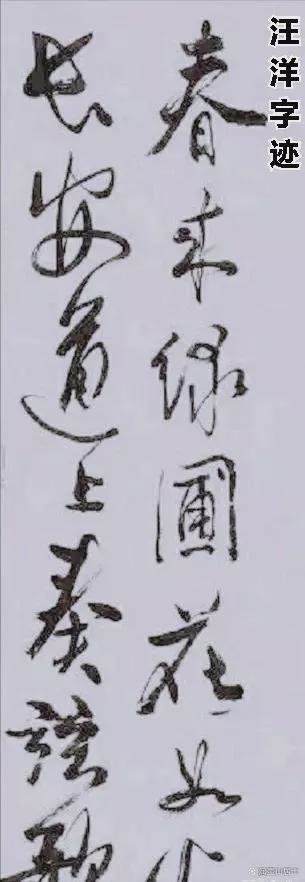 汪洋字迹
春来绿圃花如
长安道上奏弦歌